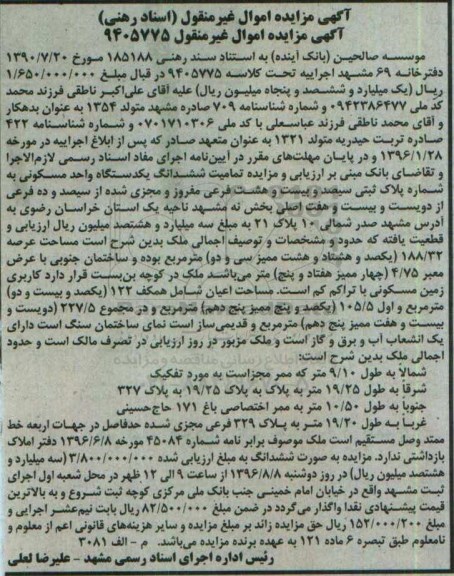 آگهی مزایده اموال غیرمنقول (اسناد رهنی)
آگهی مزایده اموال غیرمنقول ۹۴۰۵۷۷۵
موسسه صالحین (بانک آینده) به استناد سند رهنی ۱۸۵۱۸۸ مورخ ۱۳۹۰/۷/۲۰
دفترخانه ۶۹ مشهد اجراییه تحت کلاسه ۹۴۰۵۷۷۵ در قبال مبلغ ۱/۶۵۰/۰۰۰/۰۰۰
ریال (یک میلیارد و ششصد و پنجاه میلیون ریال) علیه آقای علی‌اکبر ناطقی فرزند محمد
کد ملی ۰۹۴۲۳۸۶۴۷۷ و شماره شناسنامه ۷۰۹ صادره مشهد متولد ۱۳۵۴ به عنوان بدهکار
و آقای محمد ناطقی فرزند عباسعلی با کد ملی ۰۷۰۱۷۱۰۳۰۶ و شماره شناسنامه ۴۲۲
صادره تربت حیدریه متولد ۱۳۲۱ به عنوان متعهد صادر که پس از ابلاغ اجراییه در مورخه
۱۳۹۶/۱/۲۸ و در پایان مهلت‌های مقرر در آیین‌نامه اجرای مفاد اسناد رسمی لازم‌الاجرا
و تقاضای بانک مبنی بر ارزیابی و مزایده تمامیت ششدانگ یکدستگاه واحد مسکونی به
شماره پلاک ثبتی سیصد و بیست و هشت فرعی مفروز و مجزی شده از سیصد و ده فرعی
از دویست و بیست و هفت اصلی بخش نه مشهد ناحیه یک استان خراسان رضوی به
آدرس مشهد صدر شمالی ۱۰ پلاک ۲۱ به مبلغ سه میلیارد و هشتصد میلیون ریال ارزیابی و
قطعیت یافته که حدود و مشخصات و توصیف اجمالی ملک بدین شرح است مساحت عرصه
۱۸۸/۳۲ (یکصد و هشتاد و هشت ممیز سی و دو) مترمربع بوده و ساختمان جنوبی با عرض
معبر ۴/۷۵ (چهار ممیز هفتاد و پنج) متر می‌باشد ملک در کوچه بن‌بست قرار دارد کاربری
زمین مسکونی با تراکم کم است. مساحت اعیان شامل همکف ۱۲۲ (یکصد و بیست و دو)
مترمربع و اول ۱۰۵/۵ (یکصد و پنج ممیز پنج دهم) مترمربع و در مجموع ۲۲۷/۵ (دویست و
بیست و هفت ممیز پنج دهم) مترمربع و قدیمی‌ساز است نمای ساختمان سنگ است دارای
یک انشعاب آب و برق و گاز است و ملک مزبور در روز ارزیابی در تصرف مالک است و حدود
اجمالی ملک بدین شرح است:
شمالا به طول ۹/۱۰ متر که ممر مجزاست به مورد تفکیک
شرقا به طول ۱۹/۲۵ متر به پلاک به پلاک ۱۹/۲۵ به پلاک ۳۲۷
جنوبا به طول ۱۰/۵۰ متر به ممر اختصاصی باغ ۱۷۱ حاج‌حسینی
غربا به طول ۱۹/۲۰ متر به پلاک ۳۲۹ فرعی مجزی شده حدفاصل در جهات اربعه خط
ممتد وصل مستقیم است ملک موصوف برابر نامه شماره ۴۵۰۸۴ مورخه ۱۳۹۶/۶/۸ دفتر املاک
بازداشتی ندارد. مزایده به صورت ششدانگ به مبلغ ارزیابی شده ۳/۸۰۰/۰۰۰/۰۰۰ (سه میلیارد و
هشتصد میلیون ریال) در روز دوشنبه ۱۳۹۶/۸/۸ از ساعت ۹ الی ۱۲ ظهر در محل شعبه اول اجرای
ثبت مشهد واقع در خیابان امام خمینی جنب بانک ملی مرکزی کوچه ثبت شروع و به بالاترین
قیمت پیشنهادی نقدا واگذار می‌گردد در ضمن مبلغ ۸۲/۵۰۰/۰۰۰ ریال بابت نیم‌عشر اجرایی و
مبلغ ۱۵۲/۰۰۰/۲۰۰ ریال حق مزایده زاند بر مبلغ مزایده و سایر هزینه‌های قانونی اعم از معلوم و
نامعلوم طبق تبصره ۶ ماده ۱۲۱ به عهده برنده مزایده می‌باشد. م - الف ۳۰۸۱
رئیس اداره اجرای اسناد رسمی مشهد - علیرضا لعلی